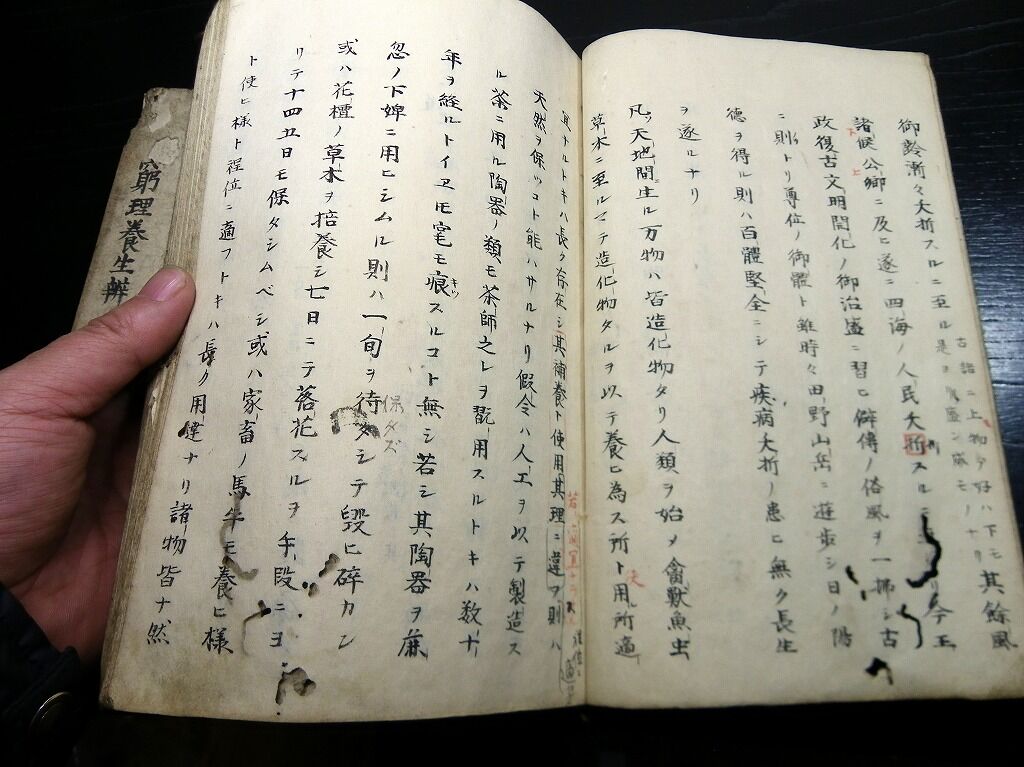 其餘風
古語ニ上物ヲ好ハ下モ
御齡漸々夭折スルニ至ル是
諸候公卿ニ及ヒ遂ニ四海ノ人民夭折スル 今王
政復古文明開化ノ御治盛ニ習ヒ僻傳ノ俗風ヲ一掃シ古
ニ則トリ尊位ノ御體ト雖時々田野山岳ニ遊歩シ日ノ陽
德ヲ得ル則ハ百體堅全ニシテ疾病夭折ノ患ヒ無ク長生
ヲ遂ルナリ
凡ソ天地間生ル万物ハ皆造化物タリ人類ヲ始メ禽獸魚虫
草木ニ至ルマテ造化物タルヲ以テ養ヒ為ス所ト用ル所適
其ナルトキハ長ク存在シ其補養ト使用其理ニ違ヲ則ハ
天然ヲ保ツコト能ハサルナリ假令ハ人工ヲ以テ製造ス
ル茶ニ用ル陶器ノ類モ茶師之レヲ翫用スルトキハ数十
年ヲ経ルトイヱモ毫モ痕スルコト無シ若シ其陶器ヲ麁
キツ
忽ノ下婢ニ用ヒシムル則ハ一旬ヲ待タシテ毀ヒ碎カン
保タズ
或ハ花檀ノ草木ヲ培養シ七日ニテ落花スルヲ手段ニヨ
リテ十四五日モ保タシムベシ或ハ家畜ノ馬牛モ養ヒ様
ト使ヒ様ト程位ニ適フトキハ長ク用達ナリ諸物皆ナ然
窮理養生辨